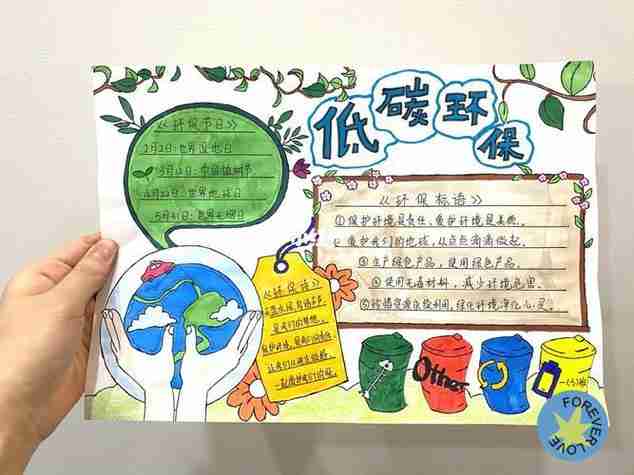 低碳环保
《环保节日》
2月2日:世界湿地日
3月12日:中国植树节
4月22日:世界地球日
5月31日:世界无烟日
《环保标语》
①保护环境是责任,爱护环境是美德。
②爱护我们的地球,从点点滴滴做起。
③生产绿色产品,使用绿色产品。
④使用无毒材料,减少环境危害。
⑤珍惜资源永续利用,绿化环境净化心灵。
《环保语》
是我们的
保护环境,是我们的责任
让我们从
一起
Other
FOREVER LOVE